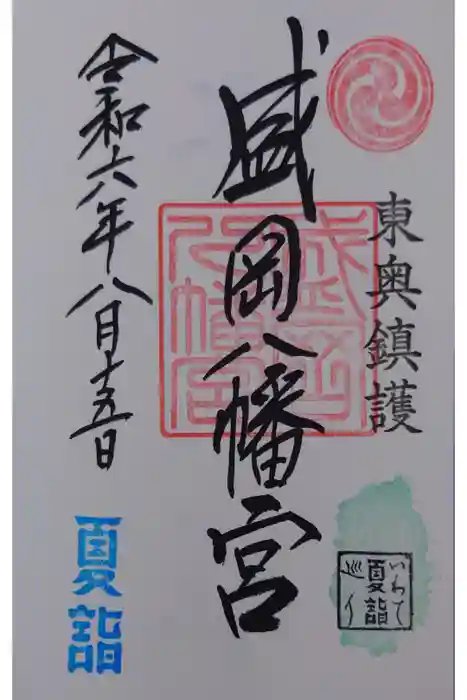 東奥鎮護
いわて
夏詣
巡り
盛岡八幡宮
盛岡
八幡宮
令和六年八月十五日
夏詣